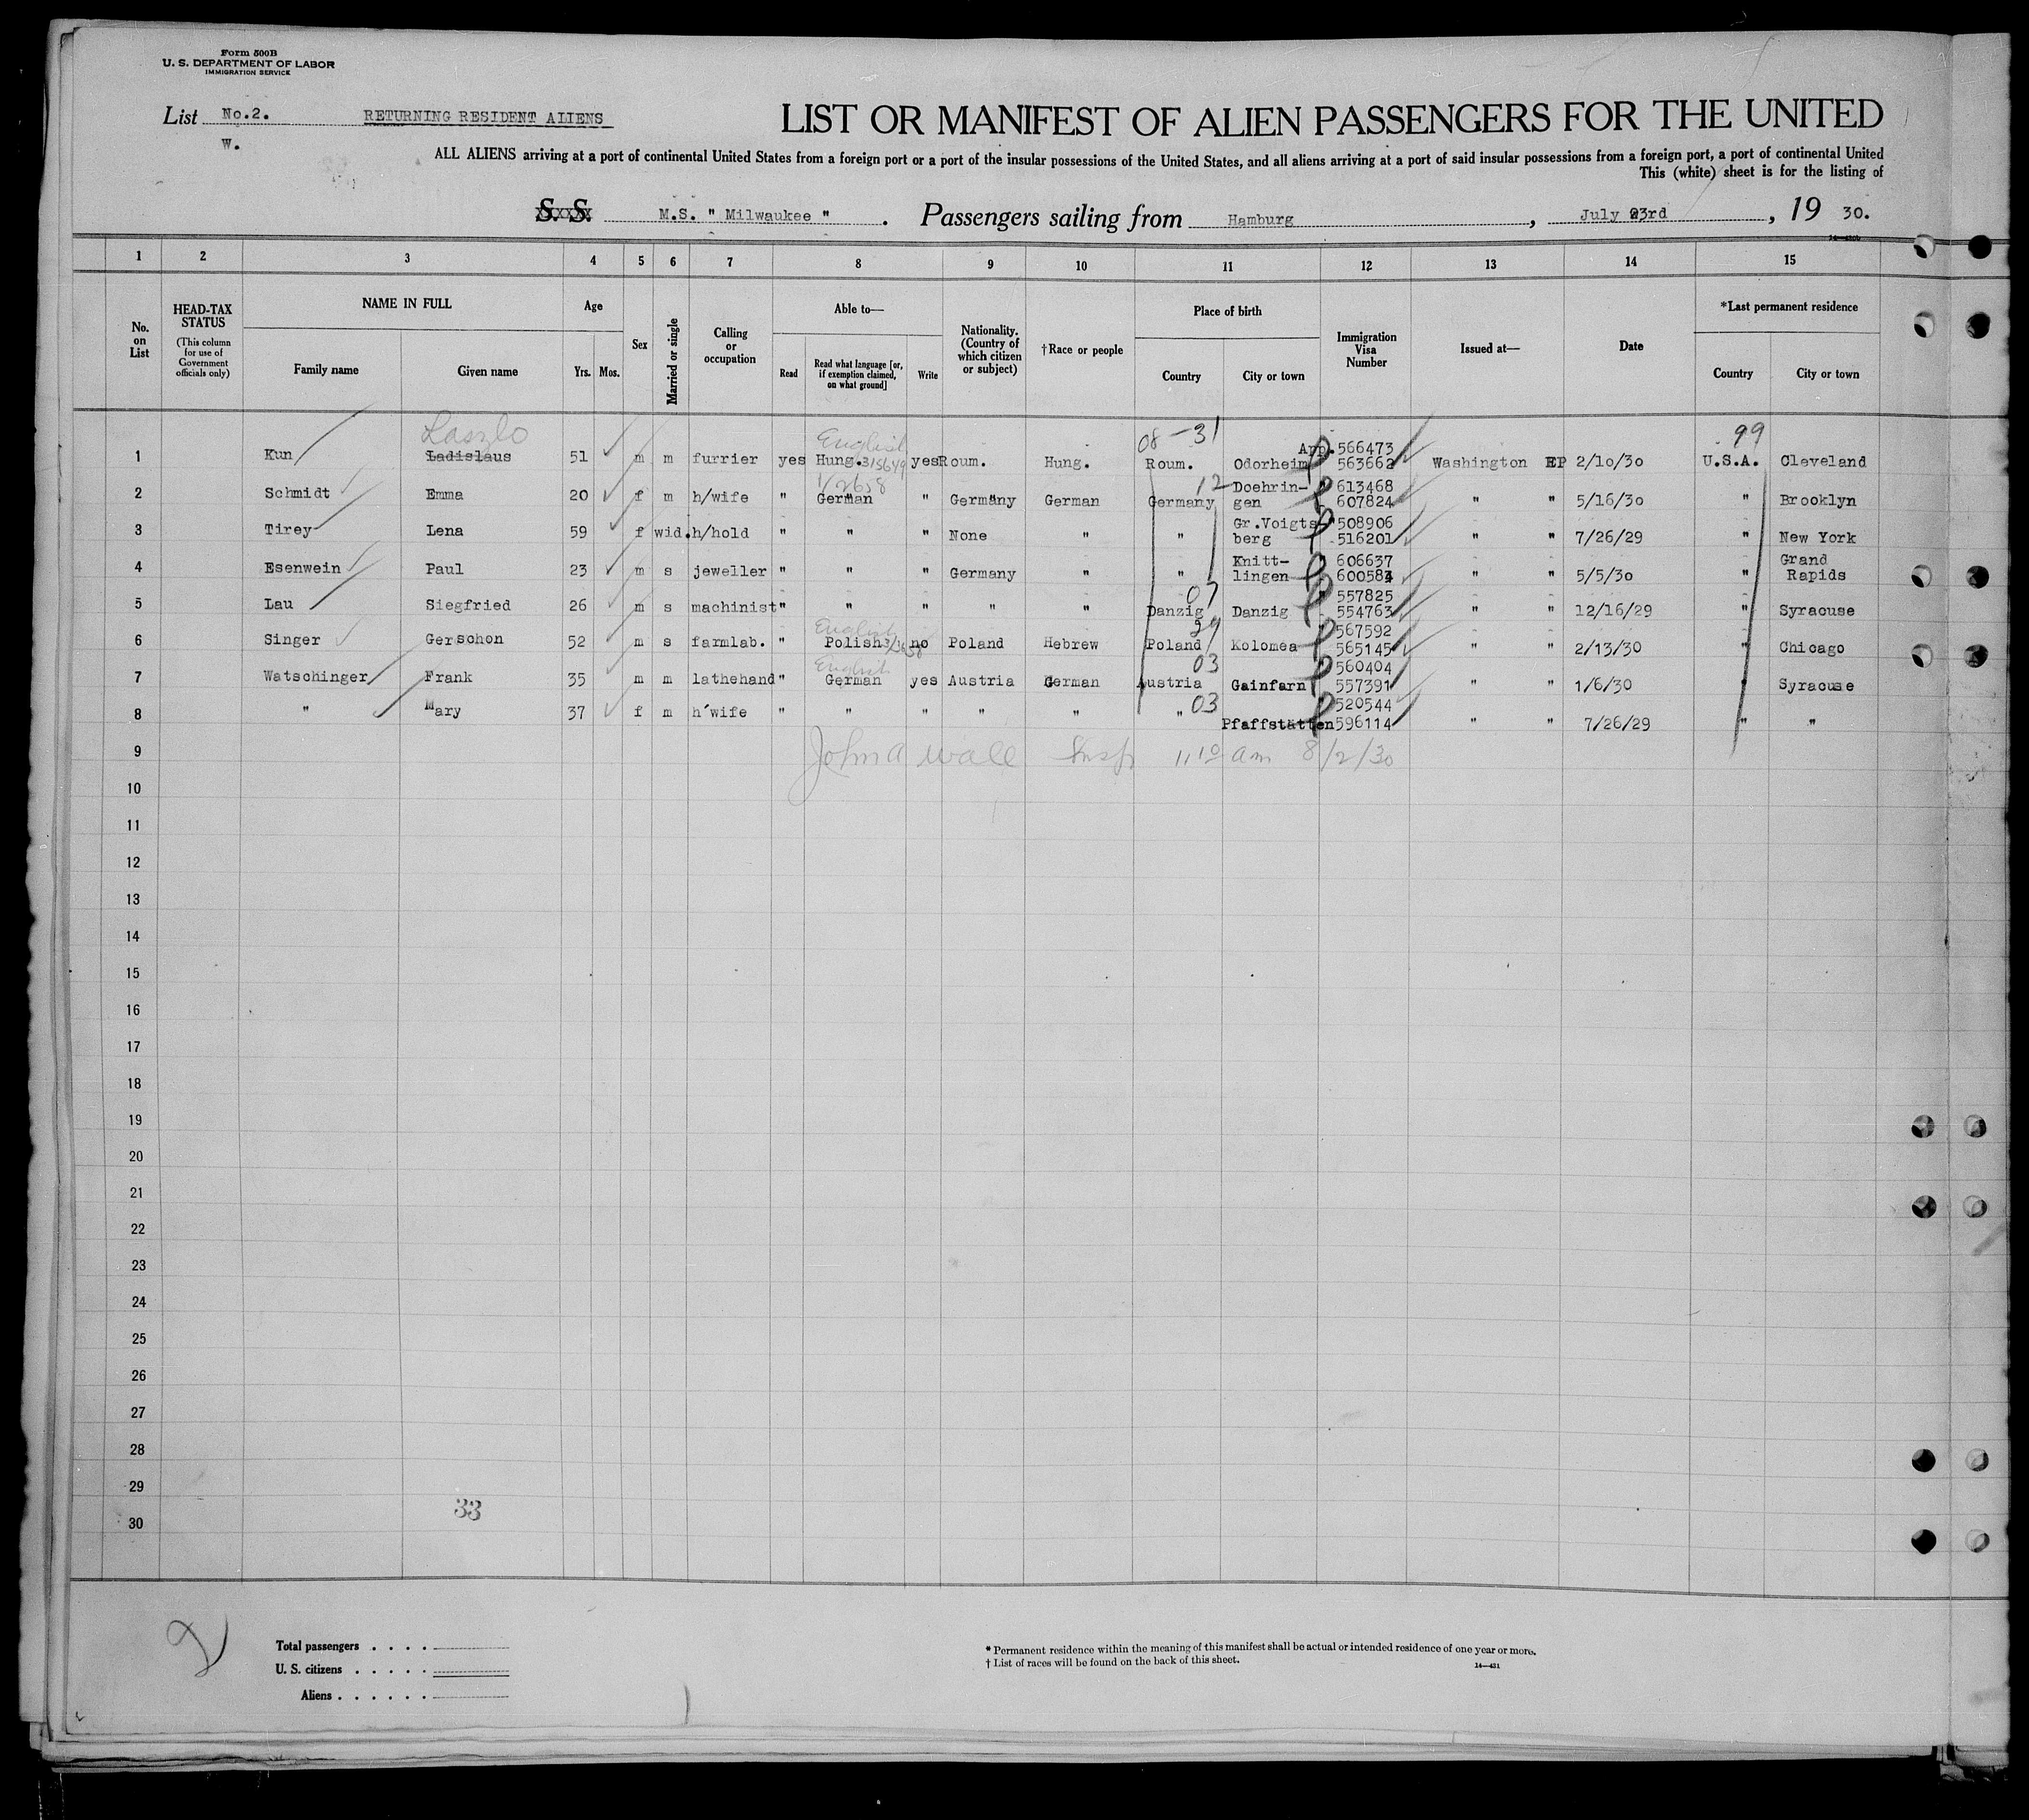 Form 500B
U. S. DEPARTMENT OF LABOR
IMMIGRATION SERVICE
List No.2. RETURNING RESIDENT ALIENS
W.
LIST OR MANIFEST OF ALIEN PASSENGERS FOR THE UNITED
ALL ALIENS arriving at a port of continental United States from a foreign port or a port of the insular possessions of the United States, and all aliens arriving at a port of said insular possessions from a foreign port, a port of continental United
This (white) sheet is for the listing of
S. S. M.S. " Milwaukee ". Passengers sailing from Hamburg, July 23rd, 19 30.
1 2 3 4 5 6 7 8 9 10 11 12 13 14 15
No. on List
HEAD-TAX STATUS
(This column for use of Government officials only)
NAME IN FULL
Family name Given name
Age
Yrs. Mos.
Sex
Married or single
Calling or occupation
Able to—
Read
Read what language [or, if exemption claimed, on what ground]
Write
Nationality. (Country of which citizen or subject)
†Race or people
Place of birth
Country City or town
Immigration Visa Number
Issued at—
Date
*Last permanent residence
Country City or town
Laszlo English 08-31 99
1 Kun Ladislaus 51 m m furrier yes Hung. yes Roum. Hung. Roum. Odorhein App. 566473 563662 Washington EP 2/10/30 U.S.A. Cleveland
12
2 Schmidt Emma 20 f m h/wife " German " Germany German Germany Doehrin-gen " 613468 607824 " " 5/16/30 " Brooklyn
3 Tirey Lena 59 f wid. h/hold " " " None " " Gr.Voigts-berg " 508906 516201 " " 7/26/29 " New York
4 Esenwein Paul 23 m s jeweller " " " Germany " " Knitt-lingen " 606637 600584 " " 5/5/30 " Grand Rapids
07
5 Lau Siegfried 26 m s machinist " " " " " Danzig Danzig " 557825 554763 " " 12/16/29 " Syracuse
English
6 Singer Gerschon 52 m s farmlab. " Polish no Poland Hebrew Poland Kolomea " 567592 565145 " " 2/13/30 " Chicago
English 03
7 Watschinger Frank 35 m m lathehand " German yes Austria German Austria Gainfarn " 560404 557391 " " 1/6/30 " Syracuse
03
8 " Mary 37 f m h'wife " " " " " " Pfaffstätten " 520544 596114 " " 7/26/29 " "
9 John A Wall Insp 11 10 am 8/2/30
10
11
12
13
14
15
16
17
18
19
20
21
22
23
24
25
26
27
28
29
30
33
2
Total passengers . . . .
U. S. citizens . . . . .
Aliens . . . . . .
* Permanent residence within the meaning of this manifest shall be actual or intended residence of one year or more.
† List of races will be found on the back of this sheet.
14—431